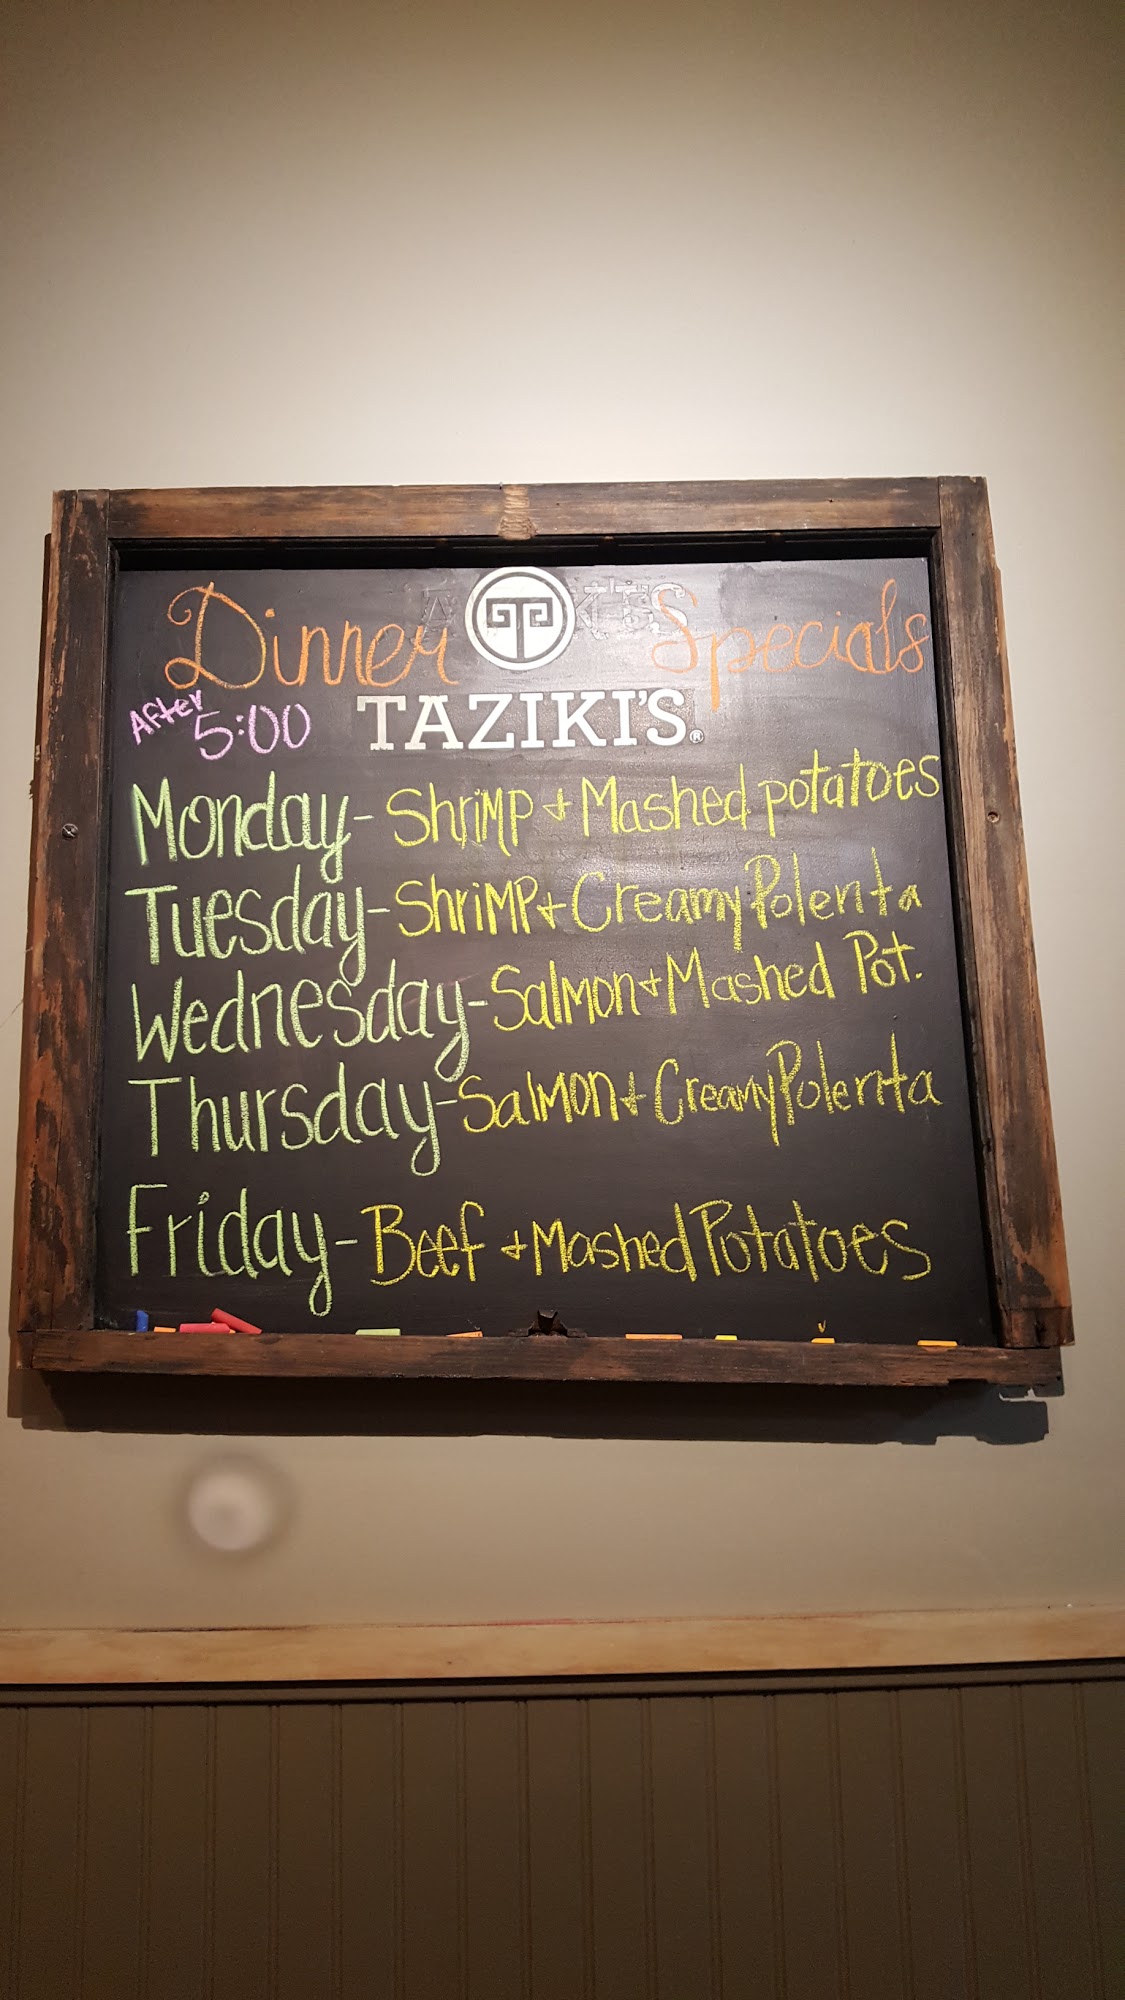 Dinner Specials
After 5:00
TAZIKI'S®
Monday - Shrimp + Mashed potatoes
Tuesday - Shrimp + Creamy Polenta
Wednesday - Salmon + Mashed Pot.
Thursday - Salmon + Creamy Polenta
Friday - Beef + Mashed Potatoes